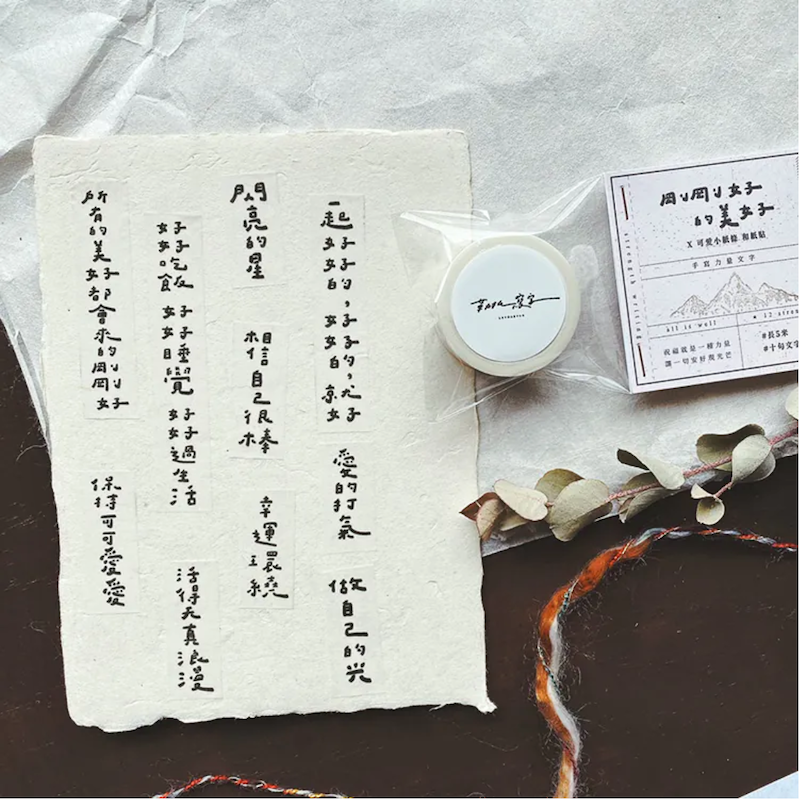 一起好好的，好好的，就好
愛的打氣
做自己的光
閃亮的星
相信自己很棒
幸運環繞
好好吃飯
好好睡覺
好好過生活
活得天真浪漫
所有的美好都會來的剛剛好
保持可可愛愛
剛剛好
的美好
X 可愛小紙條 和紙貼
手寫力量文字
strength writing
all is well
祝福就是一種力量
讓一切安好發光芒
#長5米
#十句文字